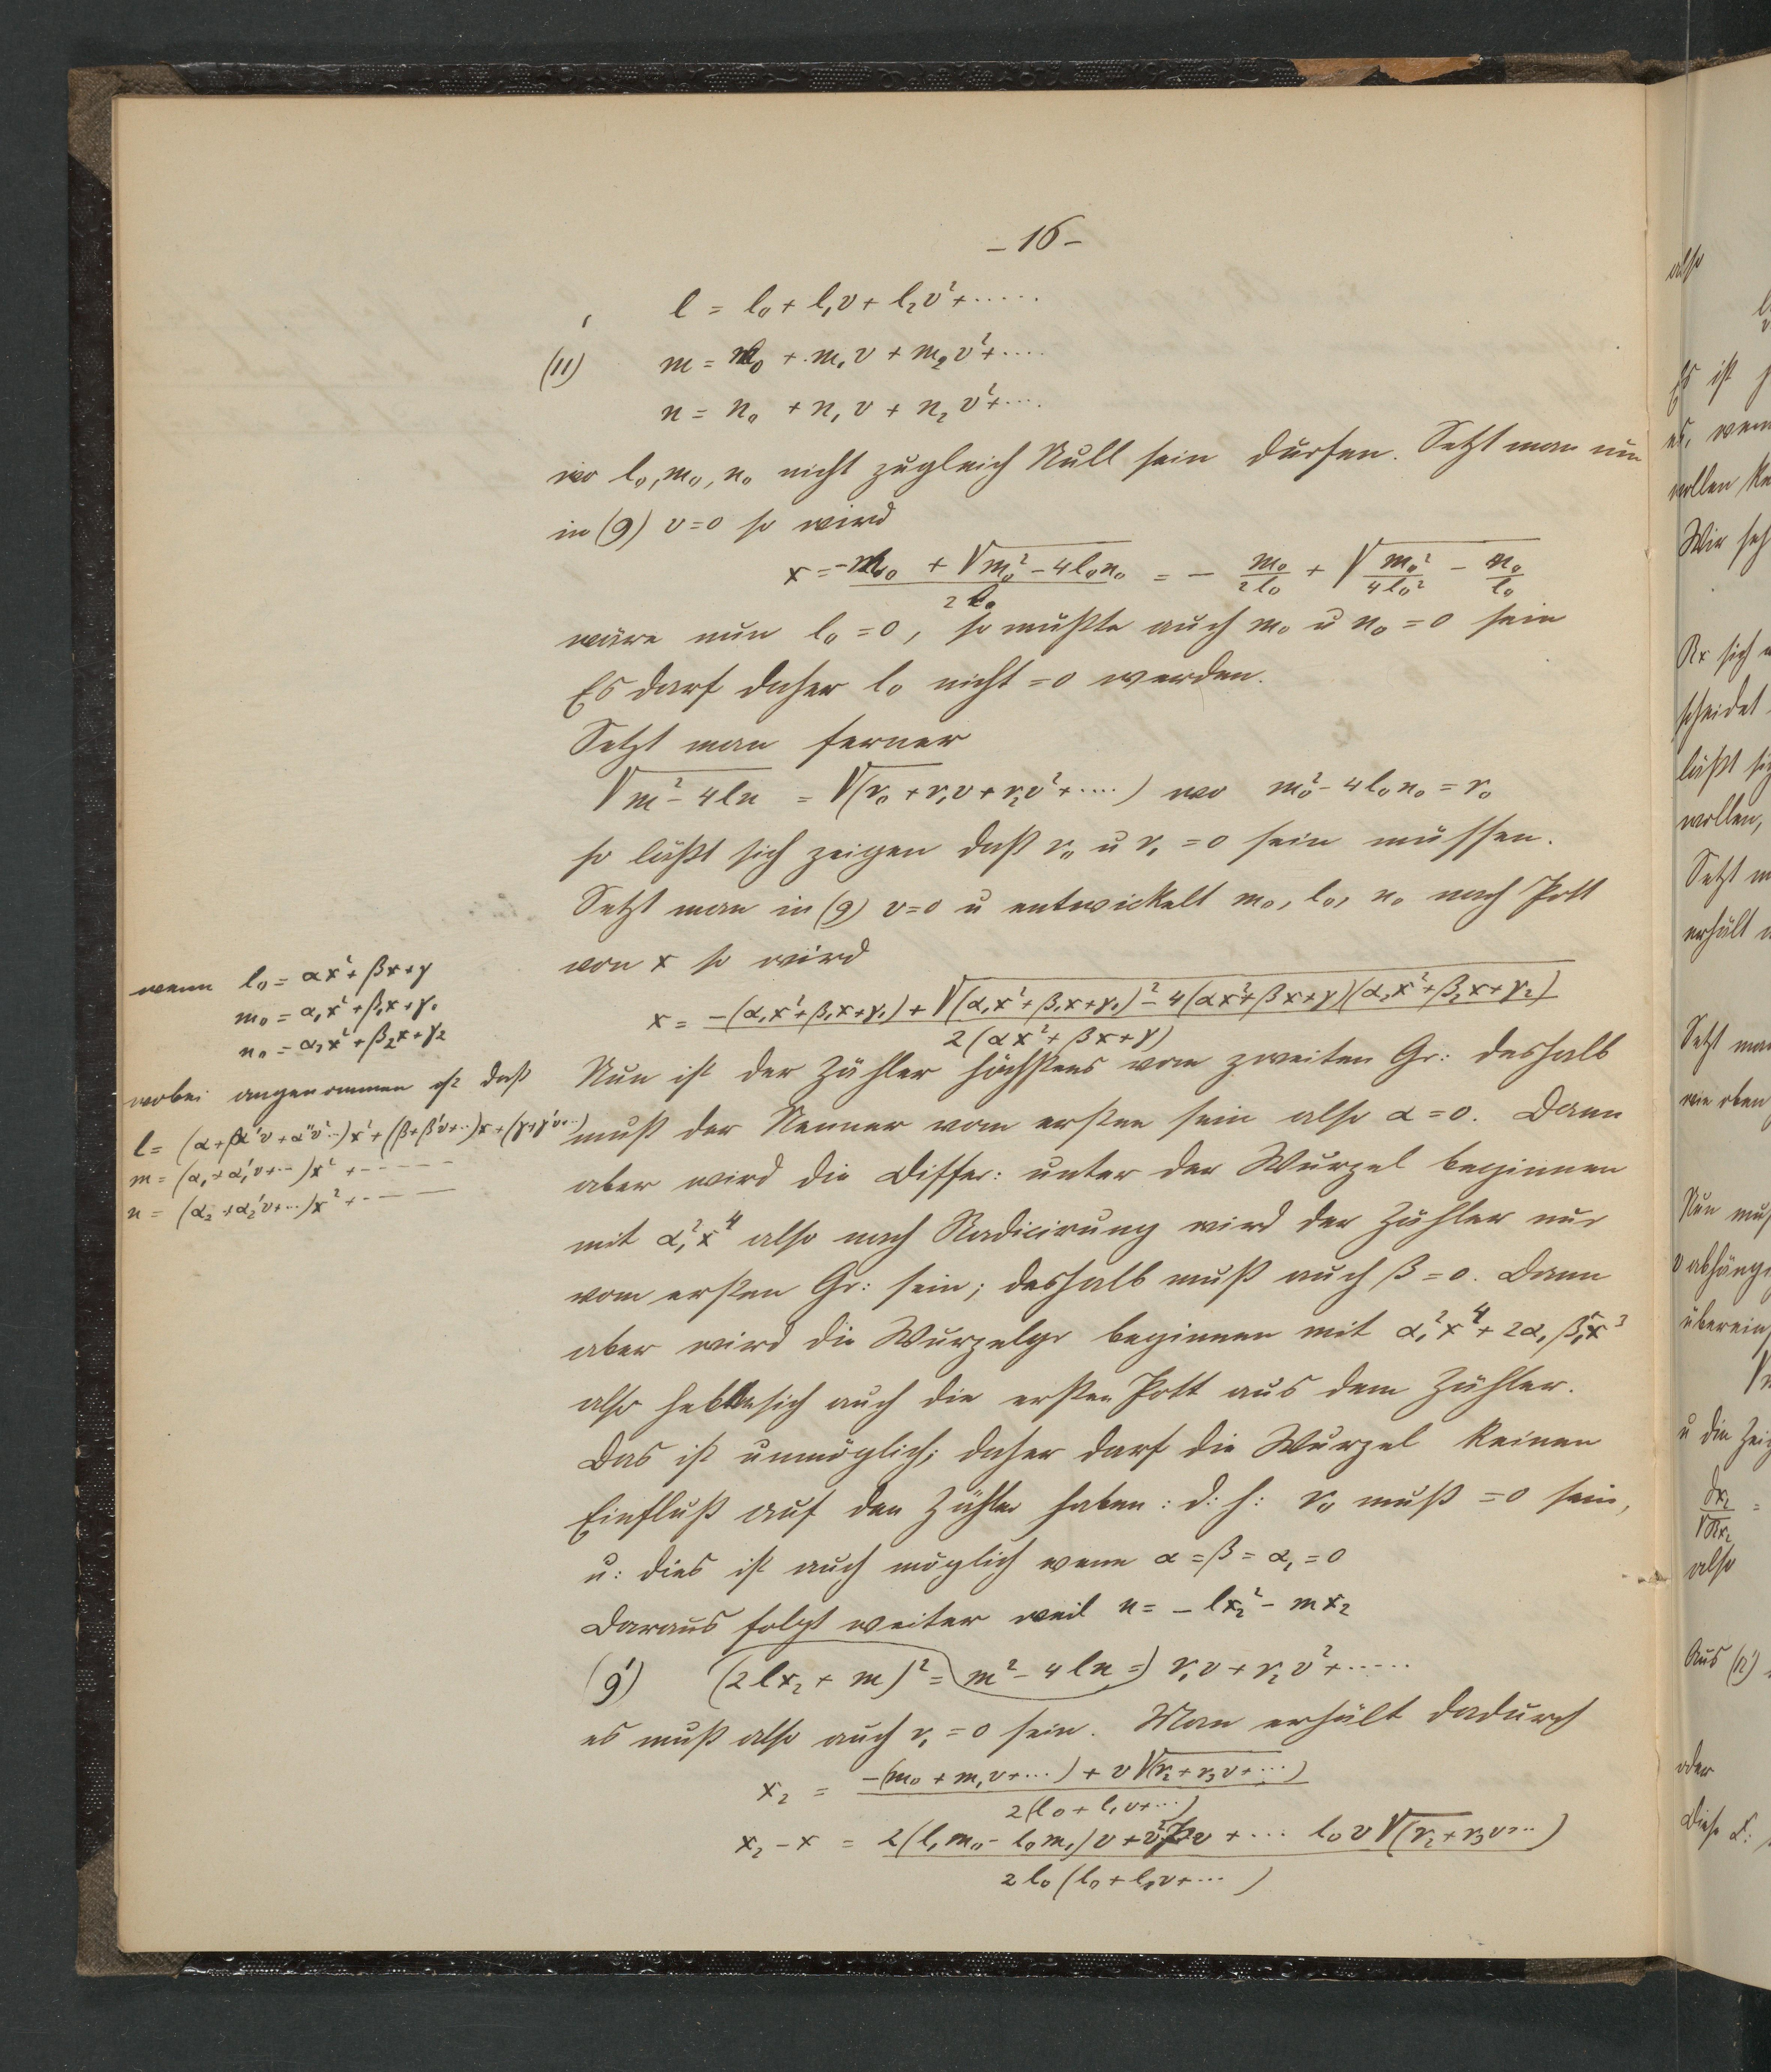 - 16 -
l = l₀ + l₁v + l₂v² + .....
(11) m = m₀ + m₁v + m₂v² + ....
n = n₀ + n₁v + n₂v² + ....
wo l₀, m₀, n₀ nicht zugleich Null sein dürfen. Setzt man nun
in (9) v=0 so wird
x = (-m₀ + √(m₀² - 4l₀n₀))/(2l₀) = - m₀/(2l₀) + √(m₀²/(4l₀²) - n₀/l₀)
wäre nun l₀ = 0, so müßte auch m₀ u n₀ = 0 sein
Es darf daher l₀ nicht = 0 werden.
Setzt man ferner
√(m² - 4ln) = √(r₀ + r₁v + r₂v² + ....) wo m₀² - 4l₀n₀ = r₀
so läßt sich zeigen daß r₀ u r₁ = 0 sein müssen.
Setzt man in (9) v=0 u entwickelt m₀, l₀, n₀ nach Pott
von x so wird
x = (-(α₁x² + β₁x + γ₁) + √((α₁x² + β₁x + γ₁)² - 4(αx² + βx + γ)(α₂x² + β₂x + γ₂)))/(2(αx² + βx + γ))
wenn l₀ = αx² + βx + γ
m₀ = α₁x² + β₁x + γ₁
n₀ = α₂x² + β₂x + γ₂
wobei angenommen ist daß
l = (α + α'v + α''v²..)x² + (β + β'v + ..)x + (γ + γ'v + ..)
m = (α₁ + α₁'v + ...)x² + - - - - -
n = (α₂ + α₂'v + ...)x² + - - -
Nun ist der Zähler höchstens vom zweiten Gr: deshalb
muß der Nenner vom ersten sein also α = 0. Dann
aber wird die Differ: unter der Wurzel beginnen
mit α₁²x⁴ also nach Radicirung wird der Zähler nur
vom ersten Gr: sein; deshalb muß auch β = 0. Dann
aber wird die Wurzelgr beginnen mit α₁²x⁴ + 2α₁β₁x³
also heben sich auch die ersten Pott aus dem Zähler.
Das ist unmöglich; daher darf die Wurzel keinen
Einfluß auf den Zähler haben: d: h: r₀ muß = 0 sein,
u: dies ist auch möglich wenn α = β = α₁ = 0
Daraus folgt weiter weil n = - lx₂² - mx₂
(9') (2lx₂ + m)² = (m² - 4ln =) r₁v + r₂v² + .....
es muß also auch r₁ = 0 sein. Man erhält dadurch
x₂ = (-(m₀ + m₁v + ...) + v√(r₂ + r₃v + ...))/(2(l₀ + l₁v + ...))
x₂ - x = (2(l₁m₀ - l₀m₁)v + ... l₀v√(r₂ + r₃v ...))/(2l₀(l₀ + l₁v + ...))
also
Es ist
es, wenn
wollen
Wir
Rx sich
scheidet
läßt
wollen,
Setzt
erhält
Setzt man
wie oben
Nun
v
überein
u die
dx₂/√Rx₂ =
also
Aus
oder
Diese